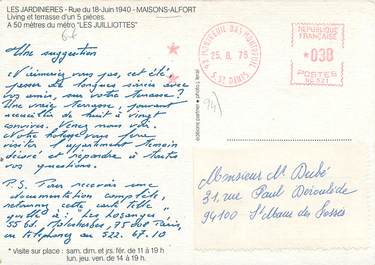 LES JARDINIERES - Rue du 18-Juin 1940 - MAISONS-ALFORT
Living et terrasse d'un 5 pièces.
A 50 mètres du métro "LES JUILLIOTTES"
Une suggestion
N'aimeriez vous pas, cet été,
passer de longues soirées avec
vos amis, sur votre terrasse ?
Une vraie terrasse, pouvant
accueillir de huit à vingt
convives. Venez nous voir.
Notre hôtesse vous fera
visiter l'appartement témoin
décoré et répondra à toutes
vos questions.
P.S. Pour recevoir une
documentation complète,
retournez cette carte telle
quelle à : "Les Losanges
55 Bd. Malesherbes, 75008 Paris,
ou téléphonez au 522. 67.10
* visite sur place : sam. dim. et jrs. fér. de 11 à 19 h
lun. jeu. ven. de 14 à 19 h.
93 MONTREUIL BAS MONTREUIL
25. 8. 76
S. ST DENIS
REPUBLIQUE
FRANÇAISE
*038
POSTES
94)
Monsieur Mr Dubé
31, rue Paul Déroulède
94100 St Maur des Fossés